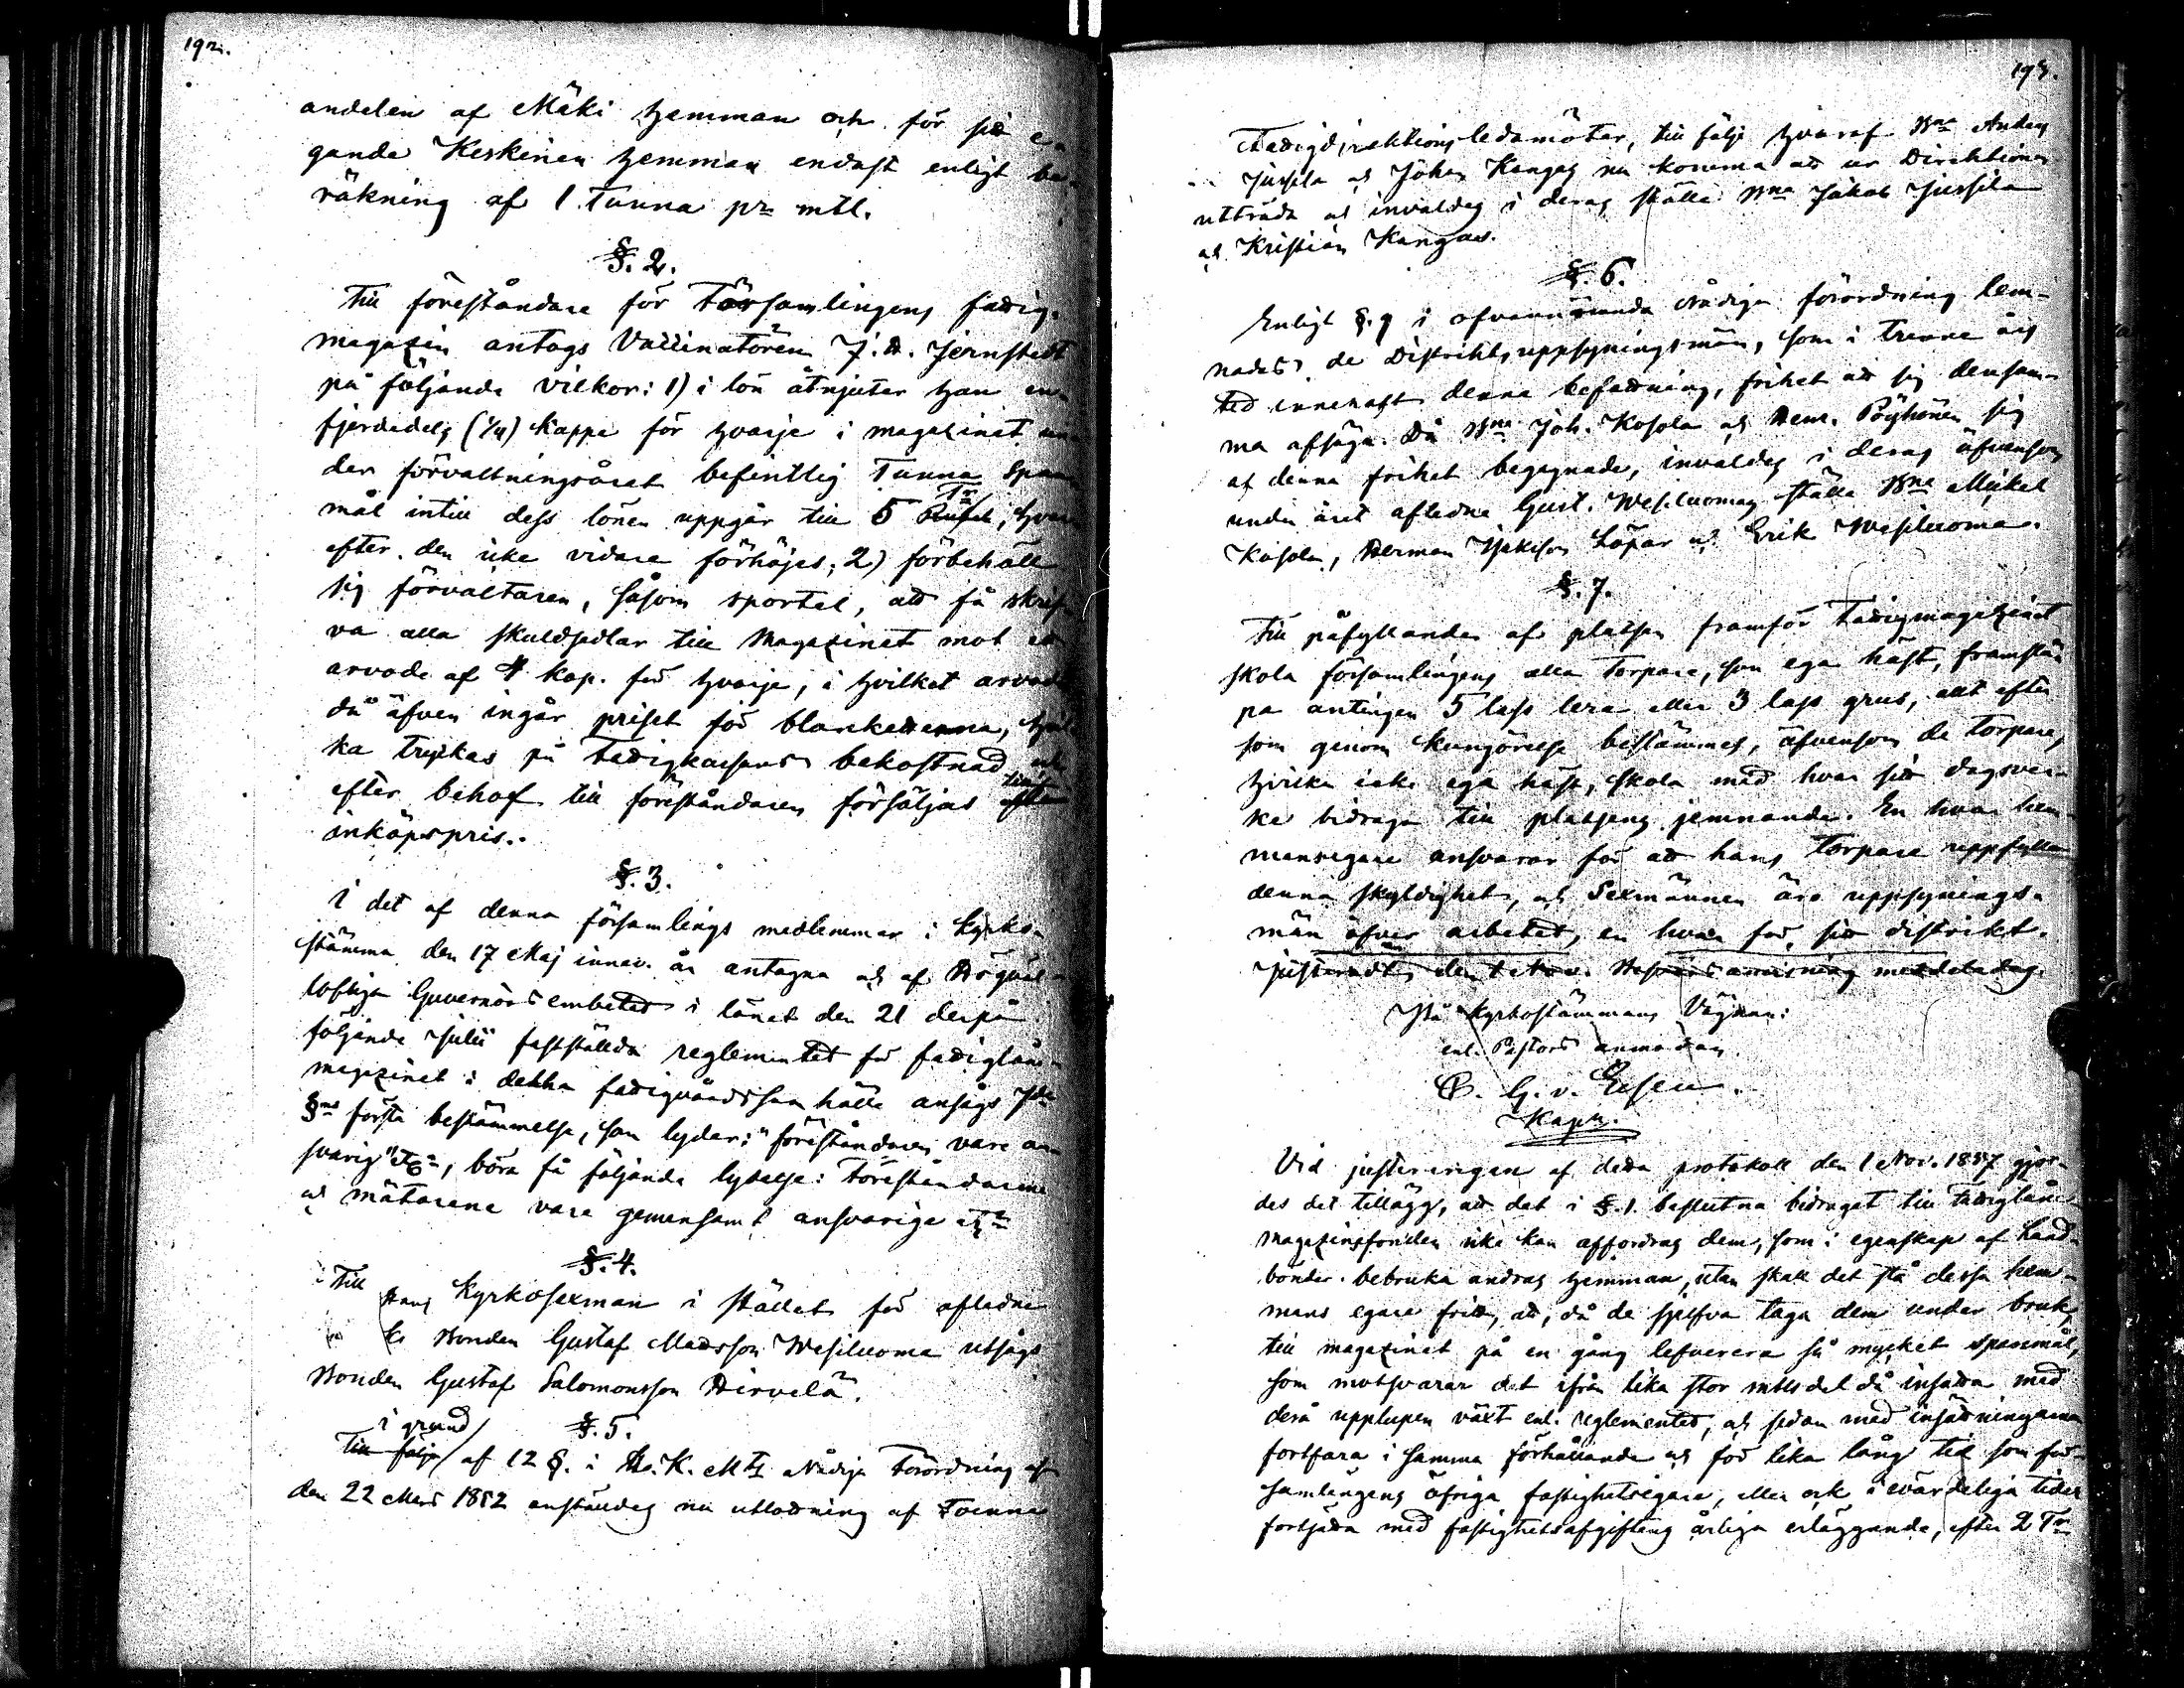 192.
andelen af Mäki hemman och för sitt e-
gande Keskinen hemman endast enligt be-
räkning af 1 Tunna pr mtl.
§. 2.
Till föreståndare för Församlingens fattig-
magazin antogs Vaccinatören J. H. Jernstedt
på följande vilkor: 1) i lön åtnjuter han en
fjerdedels (1/4) kappe för hvarje i magazinet un-
der förvaltningsåret befintlig Tunna span-
mål intill dess lönen uppgår till 5 Tr, hvar-
efter den icke vidare förhöjes; 2) förbehåller
sig förvaltaren, såsom sportel, att få skrif-
va alla skuldsedlar till Magazinet mot ett
arvode af 4 kop. för hvarje, i hvilket arvode
då äfven ingår priset för blanketterna, hvil-
ka tryckas på Fattigkassans bekostnad och
efter behof till föreståndaren försäljas till
inköpspris.
§. 3.
I det af denna församlings medlemmar i Kyrko-
stämma den 17 Maj innev. år antagna och af Högväl-
loflige Guvernörsembetet i länet den 21 derpå
följande Julii fastställda reglementet för fattiglåne-
magazinet i detta fattigvårdssamhälle ansågs 7de
§ns första bestämmelse, som lyder: "föreståndaren vare an-
svarig" etc, böra få följande lydelse: Föreståndarene
och mätarene vare gemensamt ansvarige etc
§. 4.
Till Kyrkosexman i stället för aflidne
Bonden Gustaf Mattsson Wesiluoma utsågs
Bonden Gustaf Salomonsson Hirvelä.
§. 5.
i grund
Till följe af 12 §. i H. K. Mts Nådiga Förordning af
den 22 Mars 1852 anställdes nu utlottning af Tvenne
193.
Fattigdirektionsledamöter, till följe hvaraf Bne Anders
Jussila och Johan Kangas nu komma att ur Direktionen
utträda och invaldes i deras ställe Bne Jakob Jussila
och Kristian Kangas.
§. 6.
Enligt §. 9 i ofvannämnda Nådiga förordning lem-
nades de Distriktsuppsyningsmän, som i trenne års
tid innehaft denna befattning, frihet att sig densam-
ma afsäga. Då Bne Joh. Kosola och Henr. Pöyhönen sig
af denna frihet begagnade, invaldes i deras äfvensom
under året aflidne Gust. Wesiluomas ställe Bne Mickel
Kosola, Herman Jakson Löpar och Erik Wesiluoma.
§. 7.
Till påfyllandet af platsen framför Fattigmagazinet
skola församlingens alla Torpare, som ega häst, framskaf-
pa antingen 5 lass lera eller 3 lass grus, allt efter
som genom kungörelse bestämmes, äfvensom de Torpare,
hvilka icke ega häst, skola med hvar sitt dagsver-
ke bidraga till platsens jemnande. En hvar hem-
mansegare ansvarar för att hans Torpare uppfylla
denna skyldighet, och Sexmännen äro uppsynings-
män öfver arbetet, en hvar för sitt distrikt.
Justerades den 1 Nov. Besvärsanvisning meddelades.
På Kyrkostämmans Vägnar:
enl. Pastors anmodan
C. G. v. Essen.
Kapn.
Vid justeringen af detta protokoll den 1 Nov. 1857 gjor-
des det tillägg, att det i §. 1. beslutna bidraget till Fattiglåne-
magazinsfonden icke kan affordras dem, som i egenskap af land-
bönder bebruka andras hemman, utan skall det stå dessa hem-
mans egare fritt, att, då de sjelfva taga dem under bruk,
till magazinet på en gång lefverera så mycket spanmål,
som motsvarar det ifrån lika stor mtlsdel då insatta med
derå upplupen växt enl. reglementet, och sedan med insättningarna
fortfara i samma förhållande och för lika lång tid som för-
samlingens öfriga fastighetsegare, eller ock i evärdeliga tider
fortsätta med fastighetsafgiftens årliga erläggande, efter 2 Tr